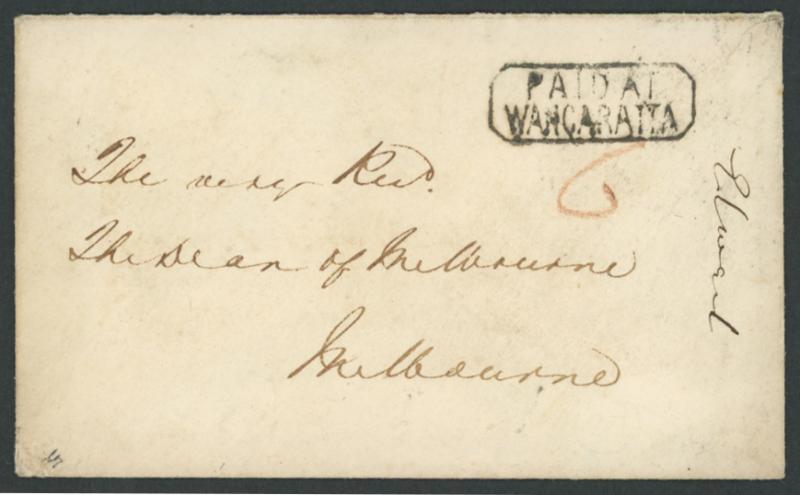 PAID AT
WANGARATTA
6
The very Revd.
The Dean of Melbourne
Melbourne
Edward